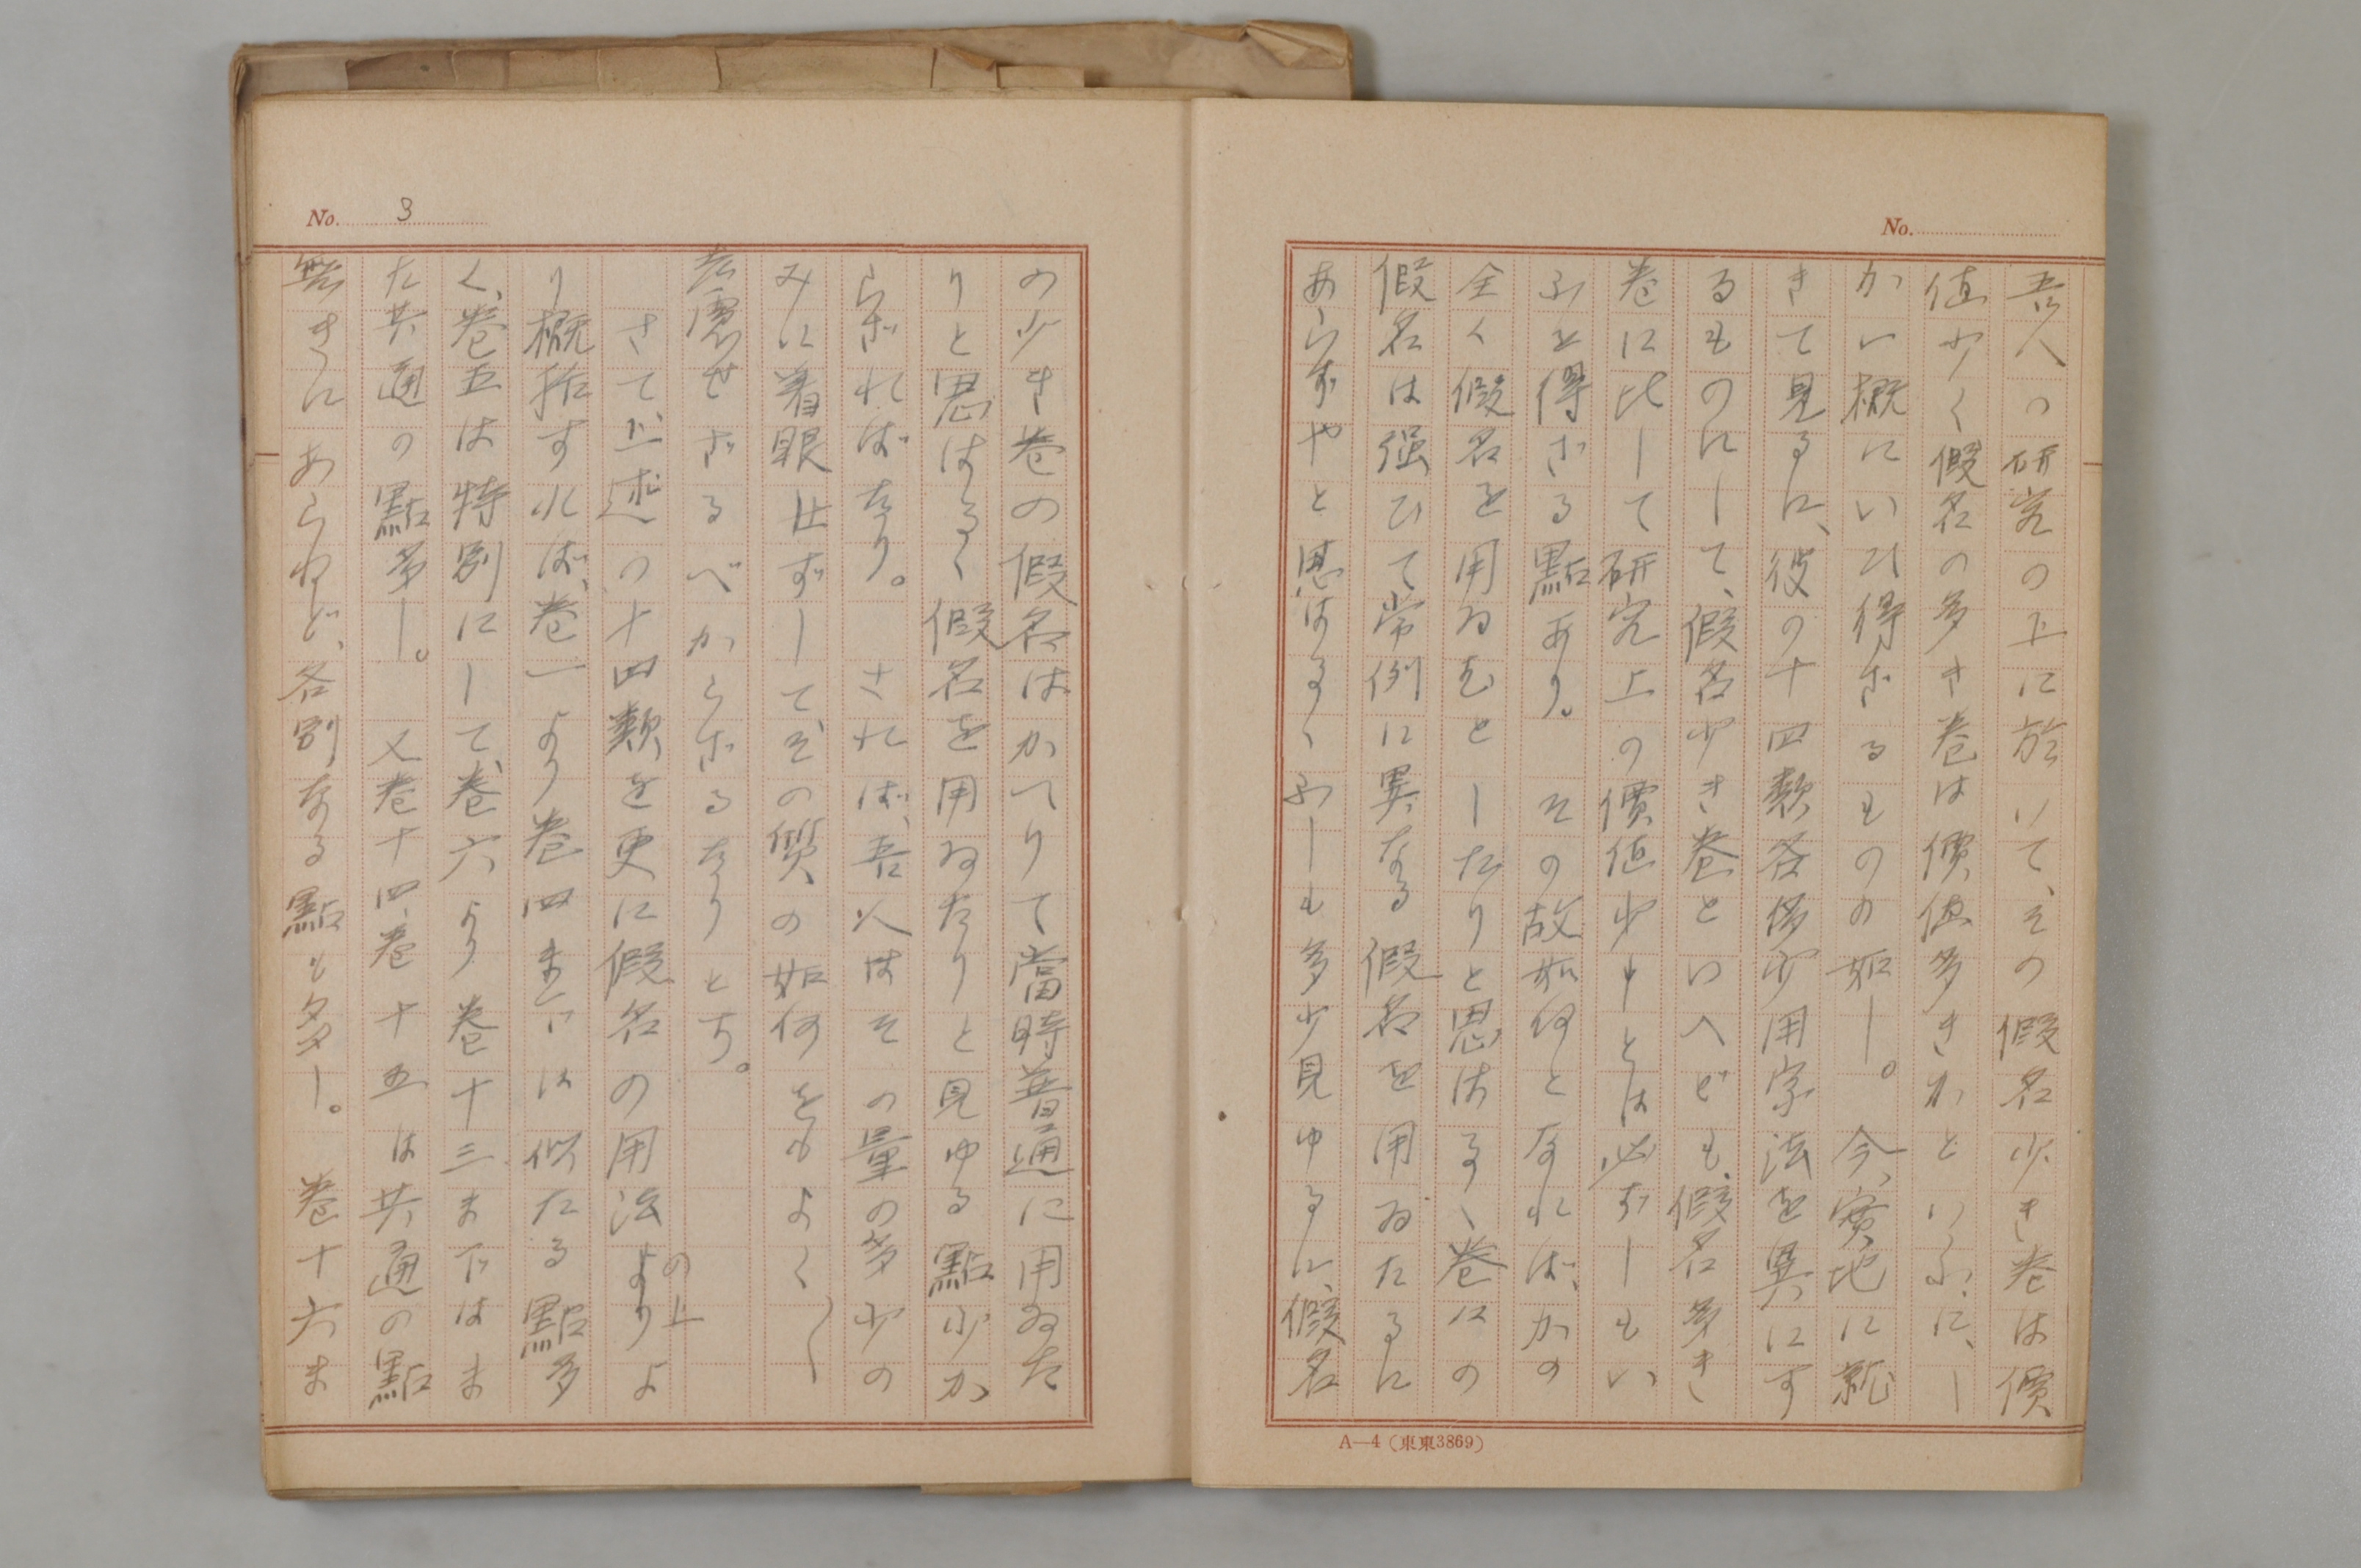 No.
吾人の研究の上に於いて、その假名少き巻は價
値少く假名の多き巻は價値多きかといふに、し
かい概にいひ得ざるものの如し。今、實地に就
きて見るに、彼の十四類各多少用字法を異にす
るものにして、假名少き巻といへども、假名多き
巻に比して研究上の價値少しとは必ずしもい
ふを得ざる點あり。その故如何となれば、かの
全く假名を用ゐむとしたりと思はるゝ巻にの
假名は强ひて常例に異なる假名を用ゐたるに
あらずやと思はるゝふしも多少見ゆるに、假名
A—4(東東3869)
No. 3
の少き巻の假名はかへりて當時普通に用ゐた
りと思はるゝ假名を用ゐたりと見ゆる點少か
らざればなり。されば、吾人はその量の多少の
みに着眼せずして、その質の如何をもよく〳〵
考慮せざるべからざるなりとす。
さて上述の十四類を更に假名の用法の上よりよ
り概括すれば、巻一より巻四までは似たる點多
く、巻五は特別にして、巻六より巻十三まではま
た共通の點多し。又巻十四、巻十五は共通の點
無きにあらねど、各別なる點も多し。巻十六ま